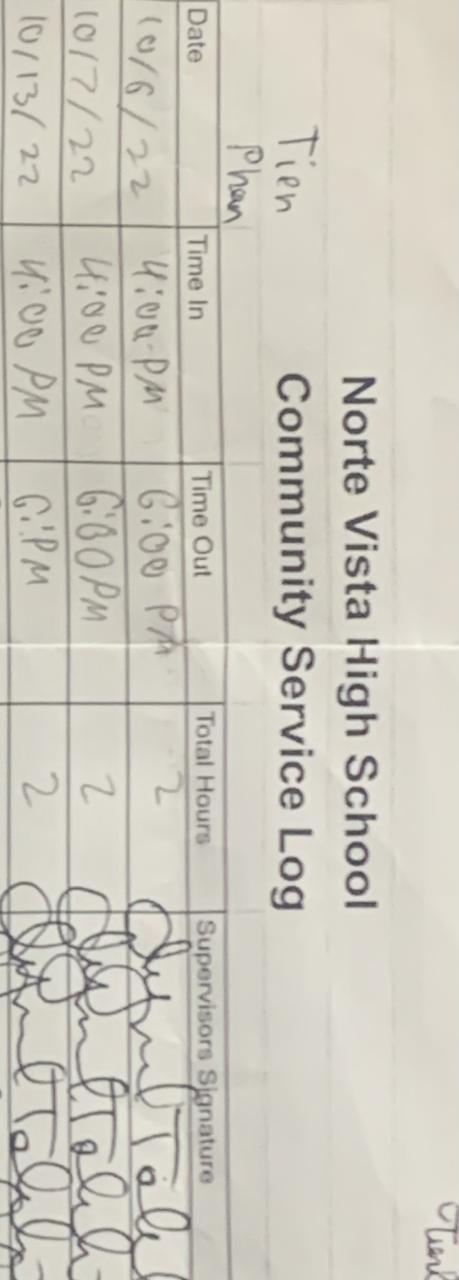 Norte Vista High School
Community Service Log
Tien
Phan
Date Time In Time Out Total Hours Supervisors Signature
10/6/22 4:00 PM 6:00 PM 2
10/7/22 4:00 PM 6:00 PM 2
10/13/22 4:00 PM 6:PM 2